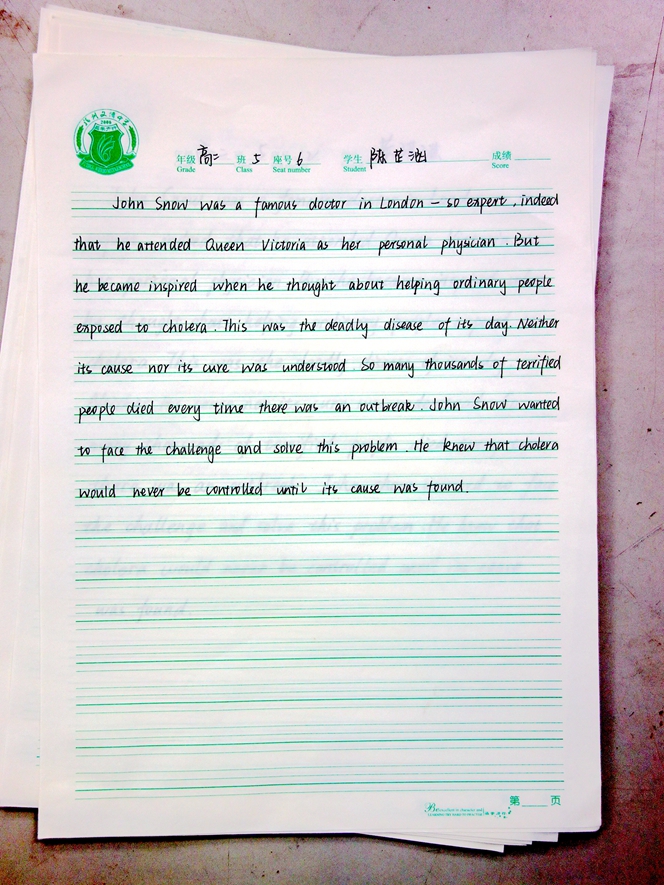 2006
年级 高二 班 5 座号 6 学生 陈芷涵 成绩
Grade Class Seat number Student Score
John Snow was a famous doctor in London – so expert, indeed
that he attended Queen Victoria as her personal physician. But
he became inspired when he thought about helping ordinary people
exposed to cholera. This was the deadly disease of its day. Neither
its cause nor its cure was understood So many thousands of terrified
people died every time there was an outbreak. John Snow wanted
to face the challenge and solve this problem. He knew that cholera
would never be controlled until its cause was found.
第 页